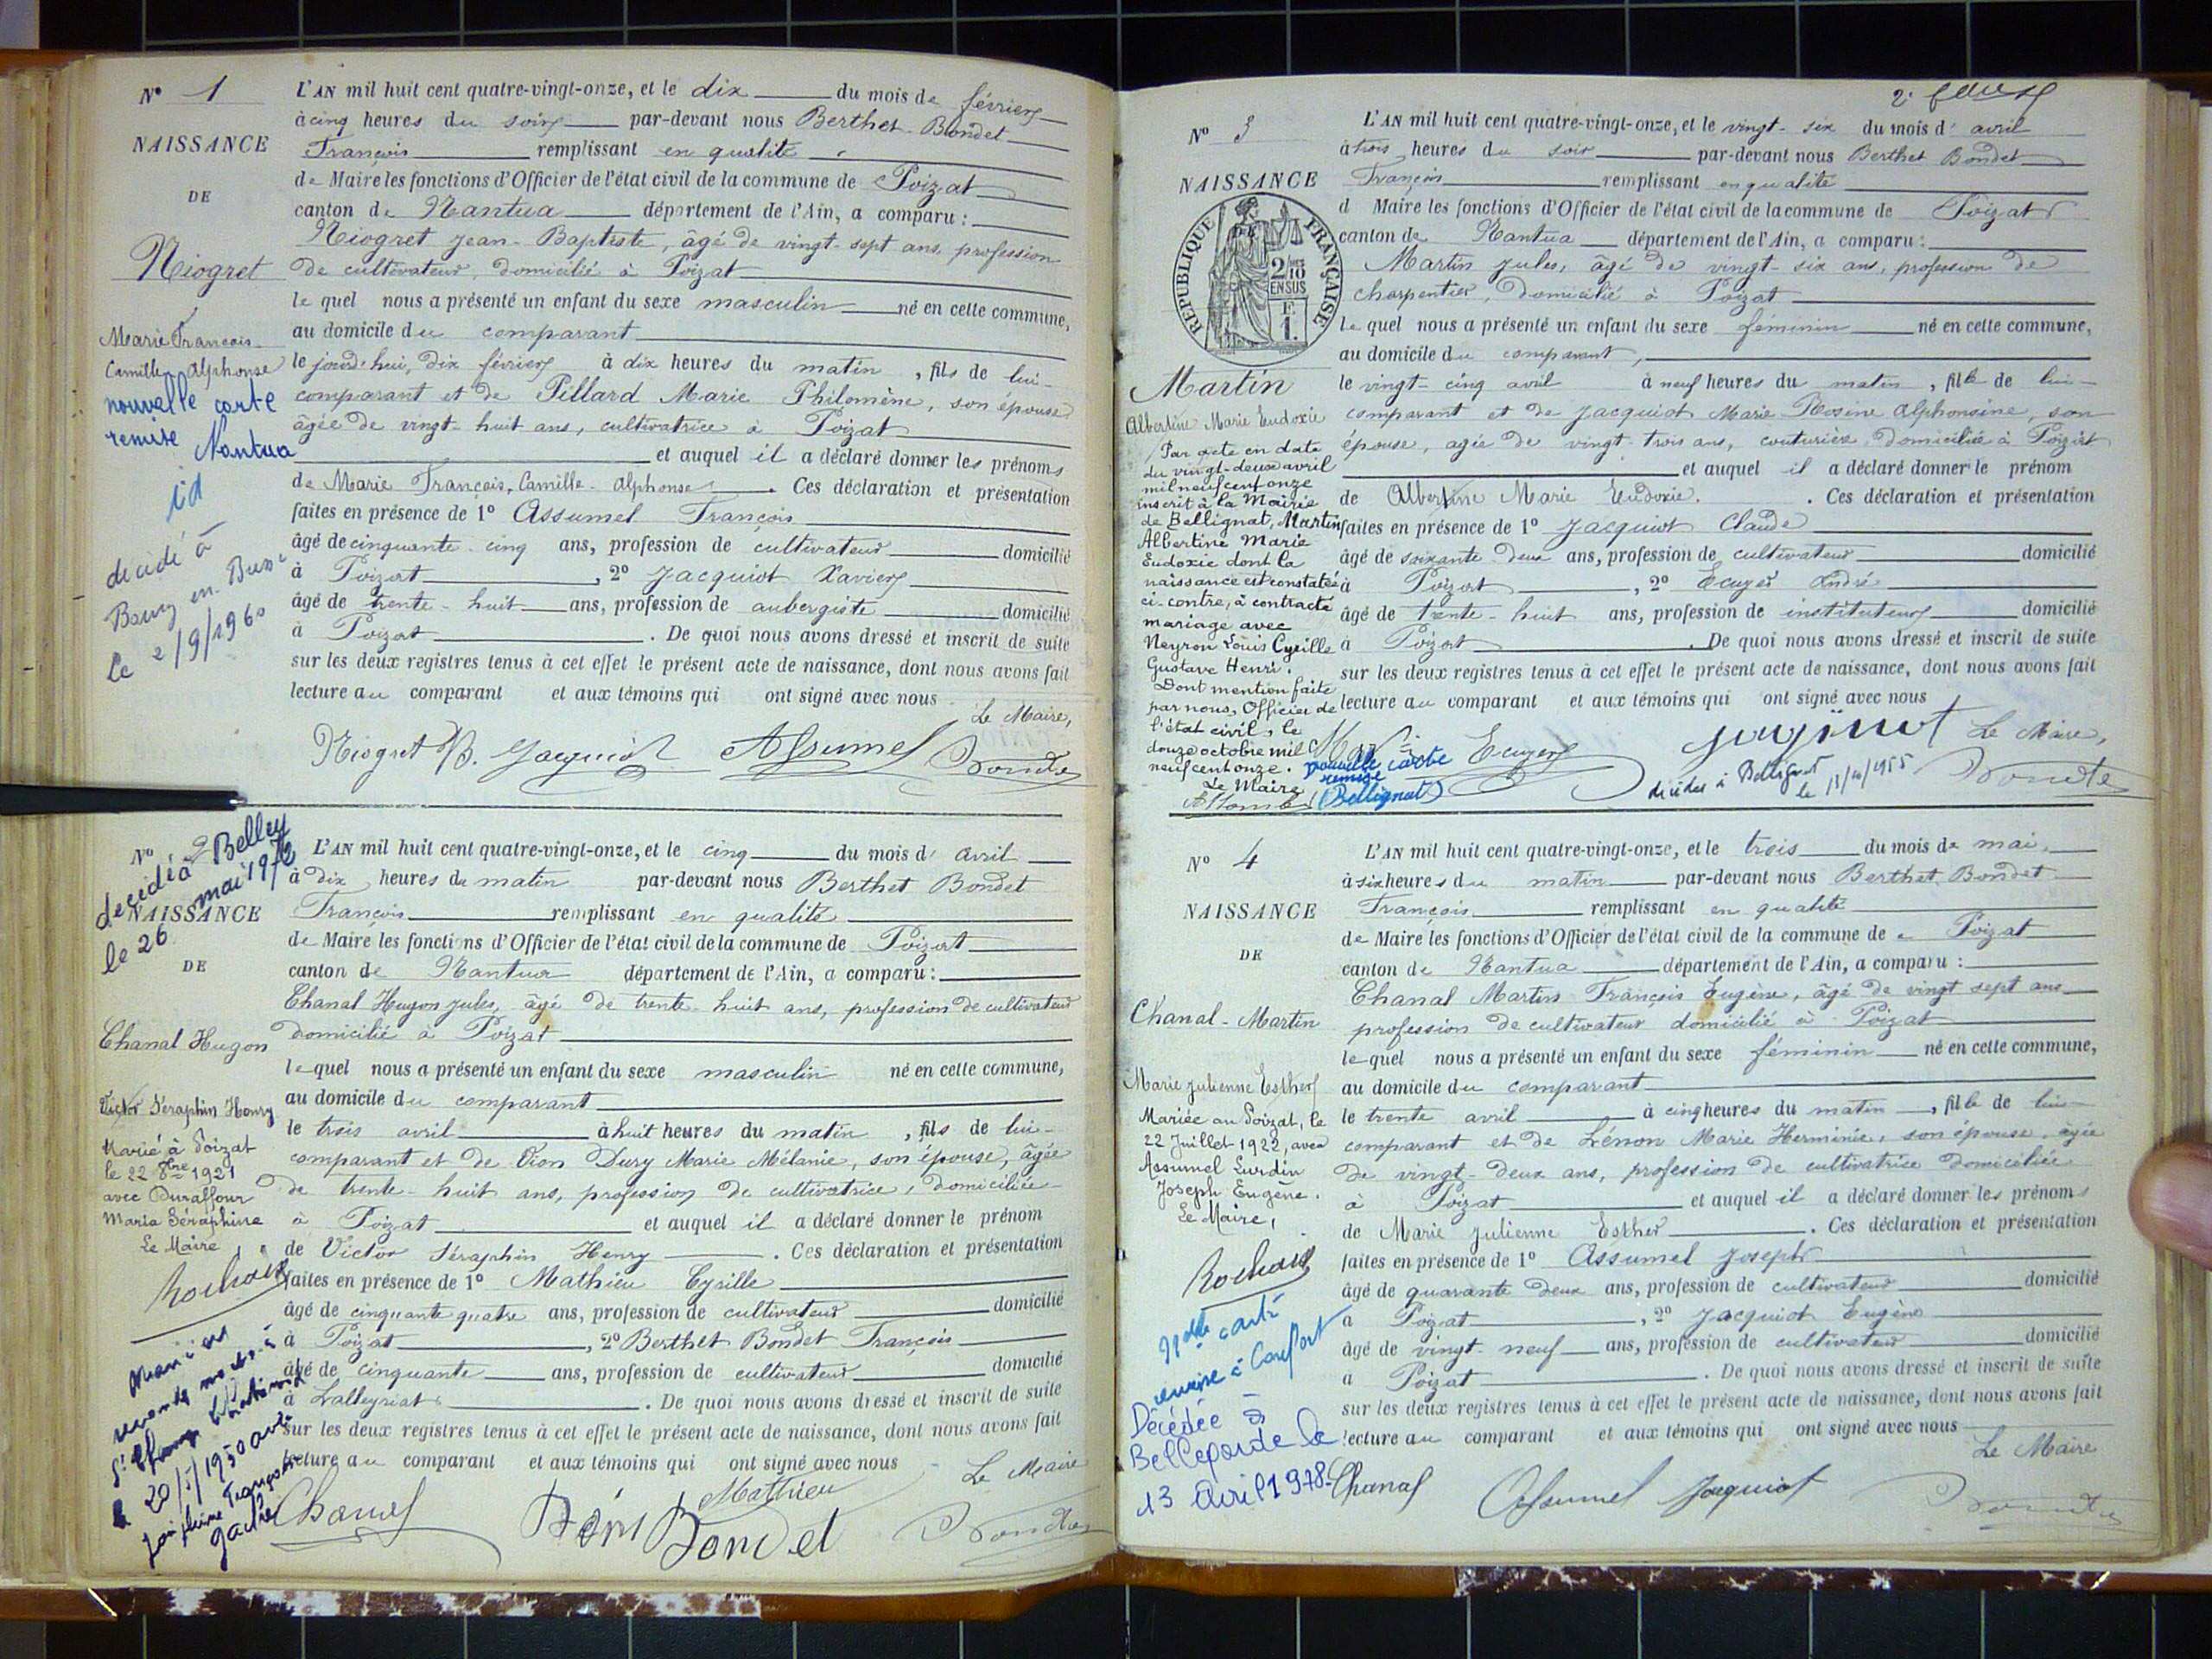 N° 1
NAISSANCE
DE
Niogret
Marie François
Camille Alphonse
nouvelle carte
remise Nantua
id
décédé à
Bourg en Bresse
le 2/9/1960
L'AN mil huit cent quatre-vingt-onze, et le dix du mois de février
à cinq heures du soir par-devant nous Berthet-Bondet
François remplissant en qualité
de Maire les fonctions d'Officier de l'état civil de la commune de Poizat
canton de Nantua département de l'Ain, a comparu :
Niogret Jean-Baptiste, âgé de vingt-sept ans, profession
de cultivateur, domicilié à Poizat
le quel nous a présenté un enfant du sexe masculin né en cette commune,
au domicile du comparant
le jourd'hui, dix février à dix heures du matin, fils de lui-
comparant et de Pillard Marie Philomène, son épouse
âgée de vingt-huit ans, cultivatrice à Poizat
et auquel il a déclaré donner les prénoms
de Marie François, Camille-Alphonse. Ces déclaration et présentation
faites en présence de 1° Assumel François
âgé de cinquante-cinq ans, profession de cultivateur domicilié
à Poizat, 2° Jacquiot Xavier
âgé de trente-huit ans, profession de aubergiste domicilié
à Poizat. De quoi nous avons dressé et inscrit de suite
sur les deux registres tenus à cet effet le présent acte de naissance, dont nous avons fait
lecture au comparant et aux témoins qui ont signé avec nous
Le Maire,
Niogret JB. Jacquiot Assumel Bondet
N° 2
décédé à Belley
le 26 mai 1972
NAISSANCE
DE
Chanal Hugon
Victor Séraphin Henry
Marié à Poizat
le 22 8bre 1921
avec Duraffour
Maria Séraphine
Le Maire,
Rochaix
20/5/1950
L'AN mil huit cent quatre-vingt-onze, et le cinq du mois d' avril
à dix heures du matin par-devant nous Berthet Bondet
François remplissant en qualité
de Maire les fonctions d'Officier de l'état civil de la commune de Poizat
canton de Nantua département de l'Ain, a comparu :
Chanal Hugon Jules, âgé de trente-huit ans, profession de cultivateur
domicilié à Poizat
le quel nous a présenté un enfant du sexe masculin né en cette commune,
au domicile du comparant
le trois avril à huit heures du matin, fils de lui-
comparant et de Vion Dury Marie Mélanie, son épouse, âgée
de trente-huit ans, profession de cultivatrice, domiciliée
à Poizat et auquel il a déclaré donner le prénom
de Victor Séraphin Henry. Ces déclaration et présentation
faites en présence de 1° Mathieu Cyrille
âgé de cinquante quatre ans, profession de cultivateur domicilié
à Poizat, 2° Berthet Bondet François
âgé de cinquante ans, profession de cultivateur domicilié
à Lalleyriat. De quoi nous avons dressé et inscrit de suite
sur les deux registres tenus à cet effet le présent acte de naissance, dont nous avons fait
lecture au comparant et aux témoins qui ont signé avec nous
Le Maire
Chanal Mathieu Bondet Bondet
N° 3
NAISSANCE
RÉPUBLIQUE FRANÇAISE
2/10
EN SUS
F
1.
Martin
Albertine Marie Eudoxie
Par acte en date
du vingt-deux avril
mil neuf cent onze
inscrit à la Mairie
de Bellignat, Martin
Albertine Marie
Eudoxie dont la
naissance est constatée
ci-contre, à contracté
mariage avec
Neyron Louis Cyrille
Gustave Henri.
Dont mention faite
par nous, Officier de
l'état civil, le
douze octobre mil
neuf cent onze.
Le Maire
L'AN mil huit cent quatre-vingt-onze, et le vingt-six du mois d' avril
à trois heures du soir par-devant nous Berthet Bondet
François remplissant en qualité
d Maire les fonctions d'Officier de l'état civil de la commune de Poizat
canton de Nantua département de l'Ain, a comparu :
Martin Jules, âgé de vingt-six ans, profession de
charpentier, domicilié à Poizat
le quel nous a présenté un enfant du sexe féminin né en cette commune,
au domicile du comparant,
le vingt-cinq avril à neuf heures du matin, fille de lui-
comparant et de Jacquiot Marie Rosine Alphonsine, son
épouse, agée de vingt-trois ans, couturière, domiciliée à Poizat
et auquel il a déclaré donner le prénom
de Albertine Marie Eudoxie. Ces déclaration et présentation
faites en présence de 1° Jacquiot Claude
âgé de soixante deux ans, profession de cultivateur domicilié
à Poizat, 2° Ecuyer André
âgé de trente-huit ans, profession de instituteur domicilié
à Poizat. De quoi nous avons dressé et inscrit de suite
sur les deux registres tenus à cet effet le présent acte de naissance, dont nous avons fait
lecture au comparant et aux témoins qui ont signé avec nous
Le Maire,
Ecuyer Jacquiot Bondet
nouvelle carte
remise
(Bellignat)
décédée à Bellignat
N° 4
NAISSANCE
DE
Chanal-Martin
Marie Julienne Esther
Mariée au Poizat, le
22 Juillet 1922, avec
Assumel Lurdin
Joseph Eugène.
Le Maire,
Rochaix
nlle carte
remise à Confort
Décédée à
Bellegarde le
13 Avril 1978
L'AN mil huit cent quatre-vingt-onze, et le trois du mois de mai
à six heures du matin par-devant nous Berthet Bondet
François remplissant en qualité
de Maire les fonctions d'Officier de l'état civil de la commune de Poizat
canton de Nantua département de l'Ain, a comparu :
Chanal Martin François Eugène, âgé de vingt sept ans
profession de cultivateur domicilié à Poizat
le quel nous a présenté un enfant du sexe féminin né en cette commune,
au domicile du comparant
le trente avril à cinq heures du matin, fille de lui-
comparant et de Lénon Marie Herminie, son épouse, agée
de vingt-deux ans, profession de cultivatrice domiciliée
à Poizat et auquel il a déclaré donner les prénoms
de Marie Julienne Esther. Ces déclaration et présentation
faites en présence de 1° Assumel Joseph
âgé de quarante deux ans, profession de cultivateur domicilié
a Poizat, 2° Jacquiot Eugène
âgé de vingt neuf ans, profession de cultivateur domicilié
a Poizat. De quoi nous avons dressé et inscrit de suite
sur les deux registres tenus à cet effet le présent acte de naissance, dont nous avons fait
lecture au comparant et aux témoins qui ont signé avec nous
Le Maire
Chanal Assumel Jacquiot Bondet